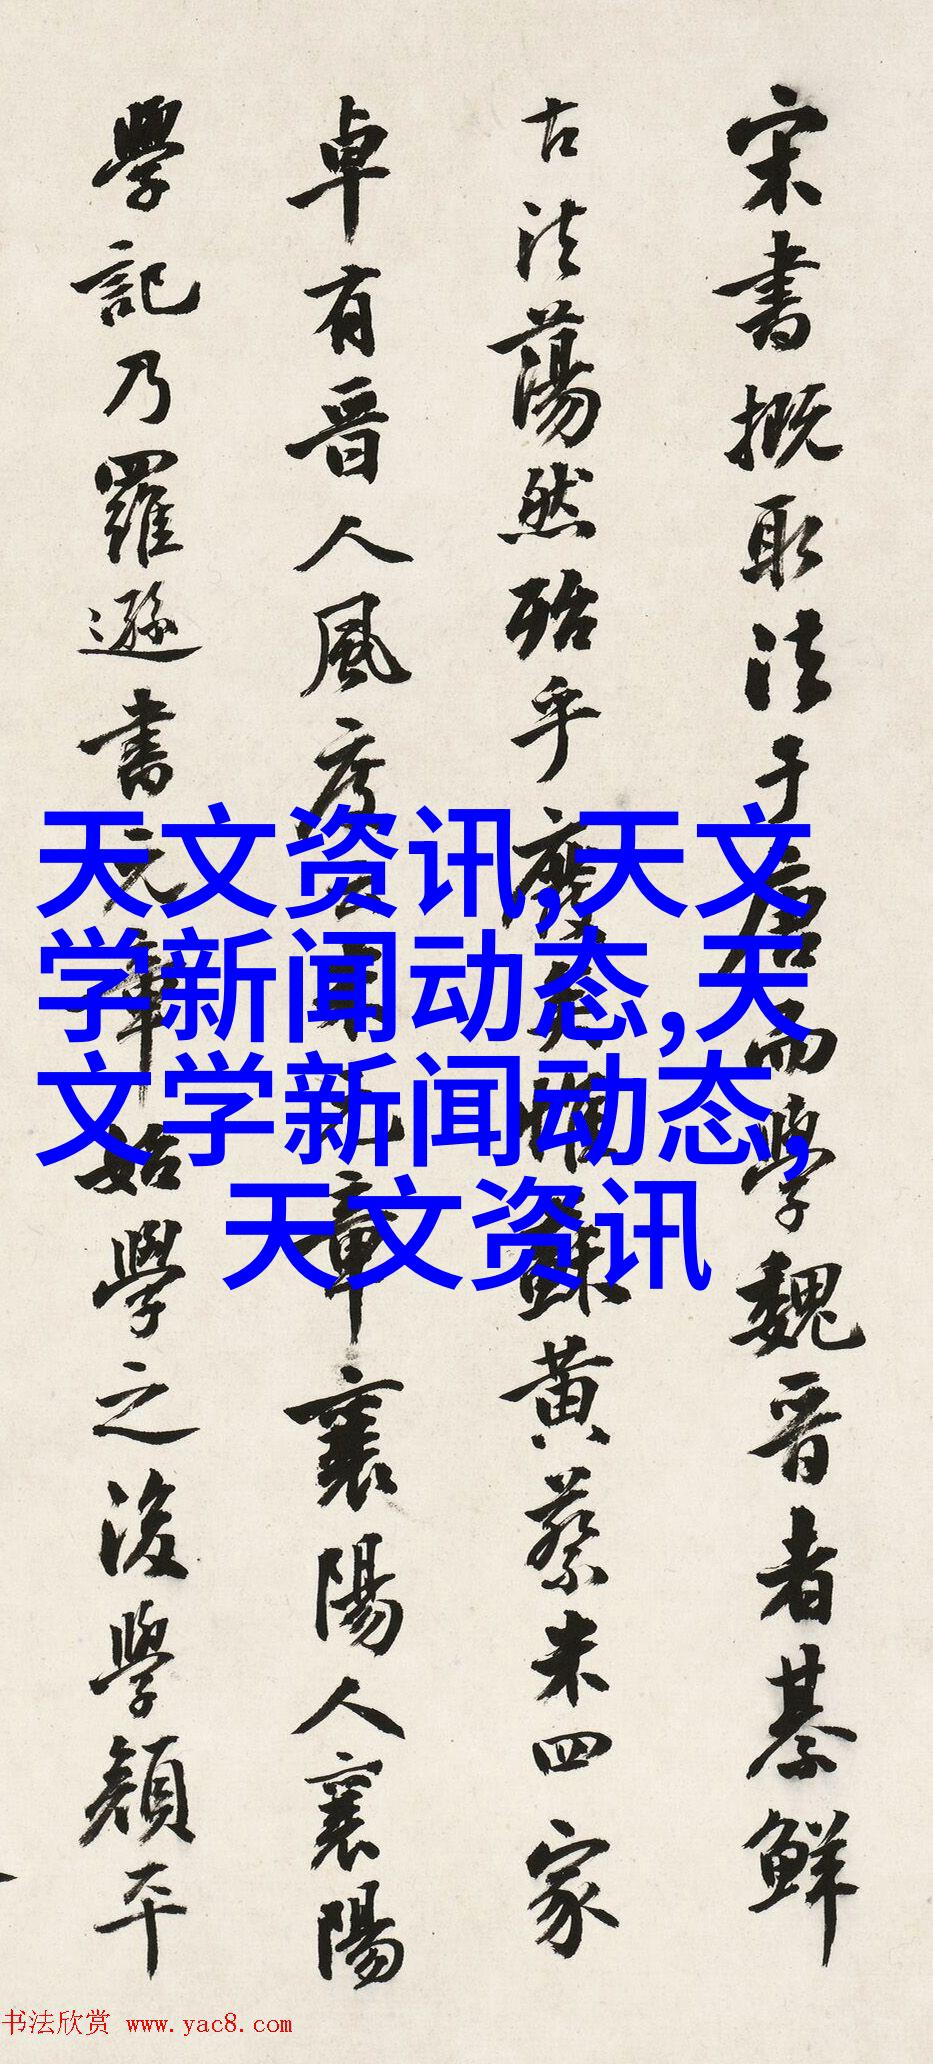 宋書概取法于唐而學魏晋者綦鮮
古法蕩然殆乎廢矣惟蘇黄蔡米四家
卓有晋人風度章襄陽人襄陽
學記乃羅遜書元章始學之後學顏平
天文资讯,天文
学新闻动态,天
文学新闻动态,
天文资讯
书法欣赏 www.yac8.com